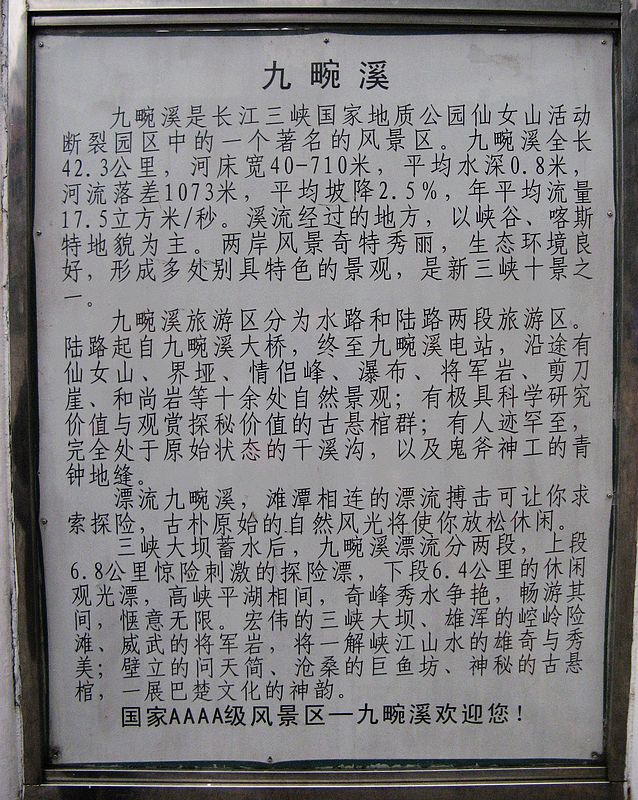 九畹溪
九畹溪是长江三峡国家地质公园仙女山活动
断裂园区中的一个著名的风景区。九畹溪全长
42.3公里，河床宽40-710米，平均水深0.8米，
河流落差1073米，平均坡降2.5%，年平均流量
17.5立方米/秒。溪流经过的地方，以峡谷、喀斯
特地貌为主。两岸风景奇特秀丽，生态环境良
好，形成多处别具特色的景观，是新三峡十景之
一。
九畹溪旅游区分为水路和陆路两段旅游区。
陆路起自九畹溪大桥，终至九畹溪电站，沿途有
仙女山、界垭、情侣峰、瀑布、将军岩、剪刀
崖、和尚岩等十余处自然景观；有极具科学研究
价值与观赏探秘价值的古悬棺群；有人迹罕至，
完全处于原始状态的干溪沟，以及鬼斧神工的青
钟地缝。
漂流九畹溪，滩潭相连的漂流搏击可让你求
索探险，古朴原始的自然风光将使你放松休闲。
三峡大坝蓄水后，九畹溪漂流分两段，上段
6.8公里惊险刺激的探险漂，下段6.4公里的休闲
观光漂，高峡平湖相间，奇峰秀水争艳，畅游其
间，惬意无限。宏伟的三峡大坝、雄浑的崆岭险
滩、威武的将军岩，将一解峡江山水的雄奇与秀
美；壁立的问天简、沧桑的巨鱼坊、神秘的古悬
棺，一展巴楚文化的神韵。
国家AAAA级风景区—九畹溪欢迎您！